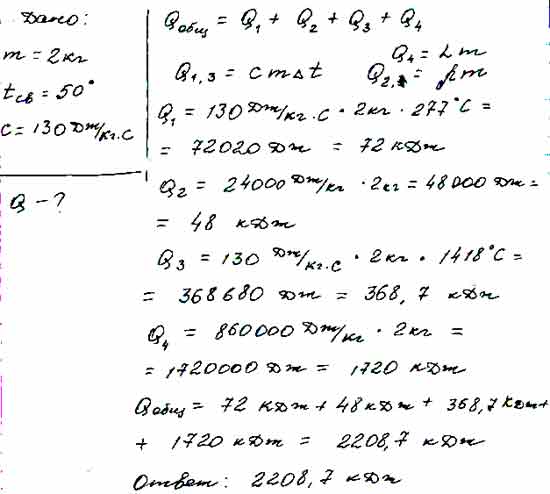 Дано:
m = 2кг
tсв = 50°
C = 130 Дж/кг·С
Q - ?
Qобщ = Q1 + Q2 + Q3 + Q4
Q4 = Lm
Q1,3 = cm∆t Q2, = λm
Q1 = 130 Дж/кг·С · 2кг · 277°С =
= 72020 Дж = 72 кДж
Q2 = 24000 Дж/кг · 2кг = 48000 Дж =
= 48 кДж
Q3 = 130 Дж/кг·С · 2кг · 1418°С =
= 368680 Дж = 368,7 кДж
Q4 = 860000 Дж/кг · 2кг =
= 1720000 Дж = 1720 кДж
Qобщ = 72 кДж + 48 кДж + 368,7 кДж +
+ 1720 кДж = 2208,7 кДж
Ответ: 2208,7 кДж